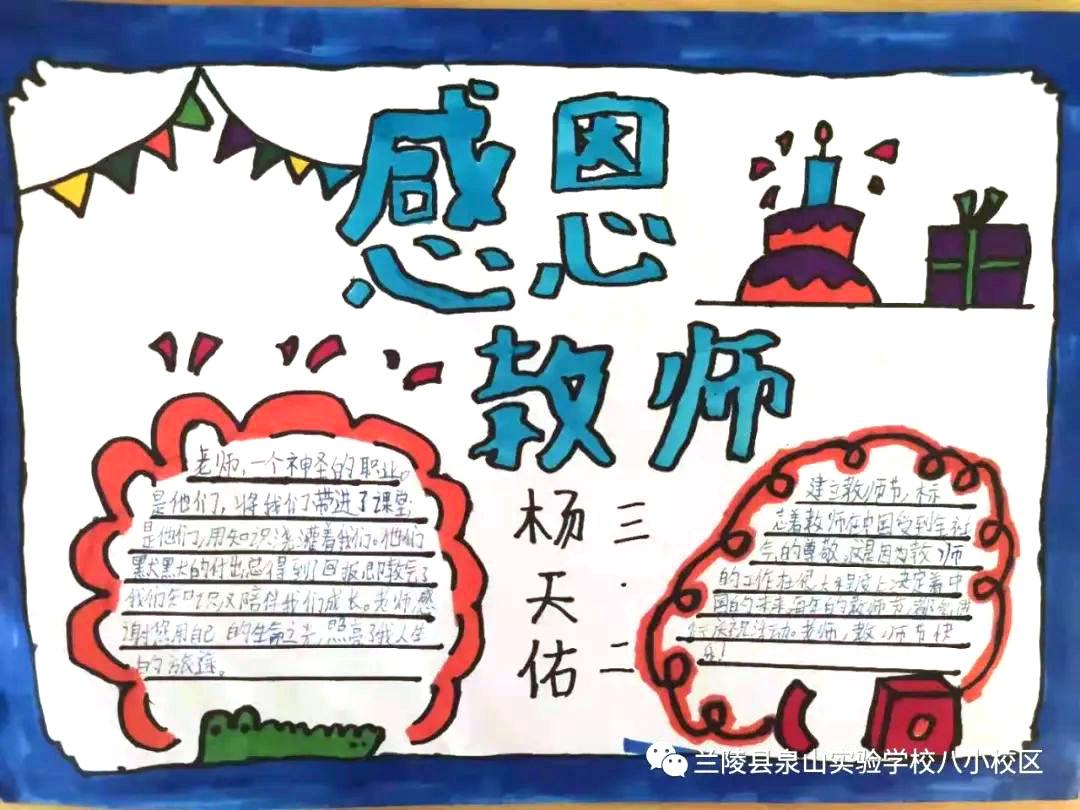 感恩
教师
老师,一个神圣的职业。
是他们,将我们带进了课堂;
是他们,用知识浇灌着我们。他们
默默的付出总得到了回报,即教会了
我们知识,又陪伴我们成长。老师,感
谢您用自己的生命之光,照亮了我人生
的旅途。
杨天佑
三·二
建立教师节,标
志着教师在中国受到全社
会的尊敬。这是因为教师
的工作在很大程度上决定着中
国的未来。每年的教师节,都会进
行庆祝活动。老师,教师节快
乐!
兰陵县泉山实验学校八小校区